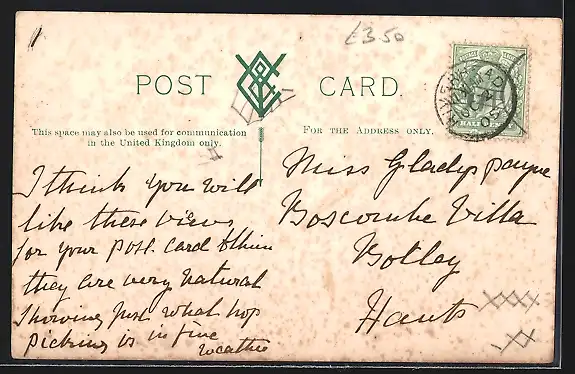 £3.50
POST CARD.
This space may also be used for communication
in the United Kingdom only.
FOR THE ADDRESS ONLY.
I think you will
like these views
for your post card
they are very natural
showing just what hop
picking is in fine
weather
Miss Gladys Payne
Boscombe Villa
Botley
Hants